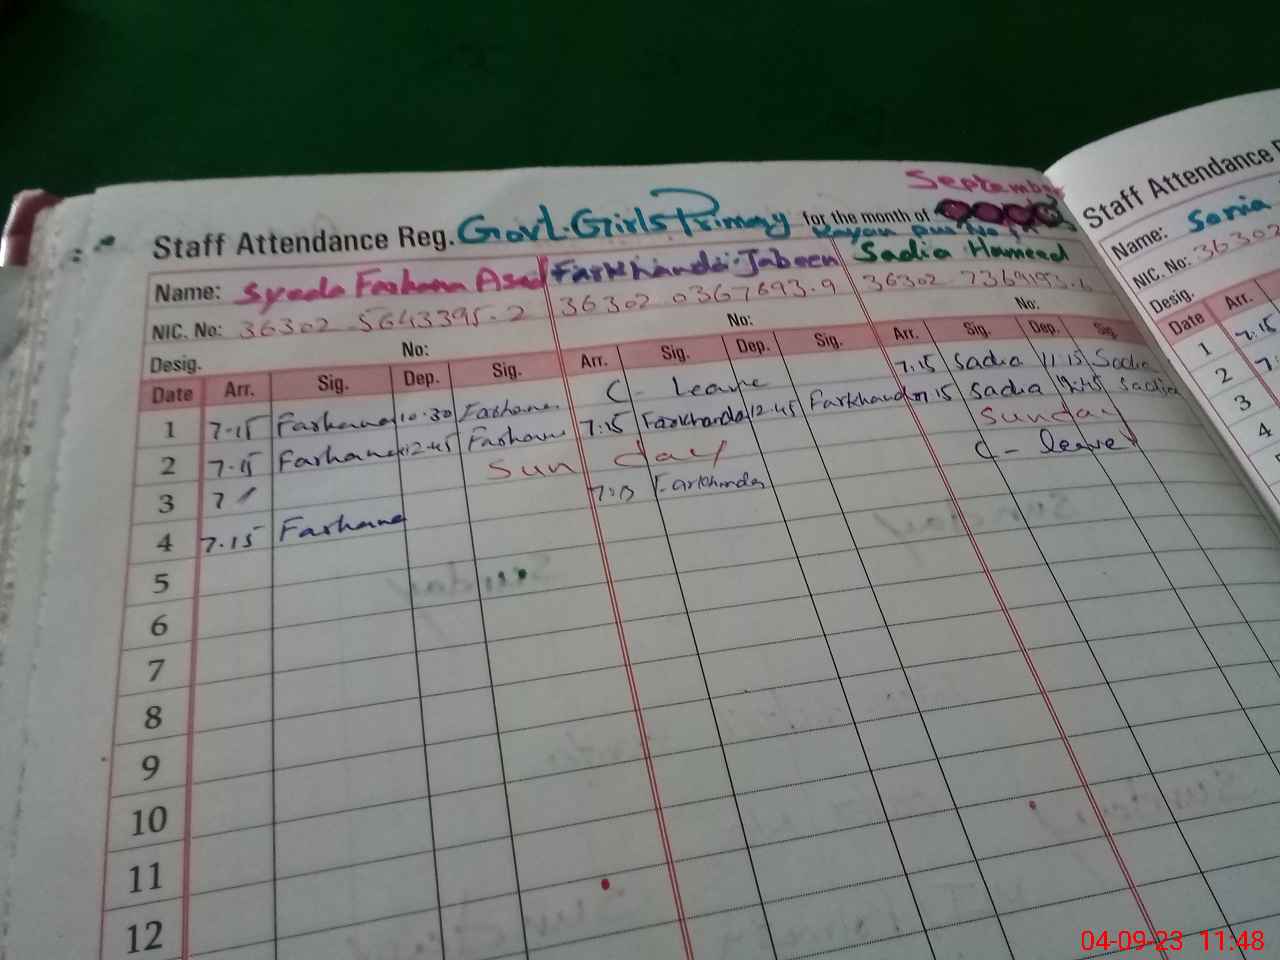 September
Staff Attendance Reg. Govt. Girls Primary for the month of
Name: Syeda Farhana Asad Farkhanda Jabeen Sadia Hameed
NIC. No: 36302 5643395-2 36302 0367693-9 36302 7369193-6
Desig. No: No: No:
Date Arr. Sig. Dep. Sig. Arr. Sig. Dep. Sig. Arr. Sig. Dep. Sig.
1 7-15 Farhana 10-30 Farhana C - leave 7.15 Sadia 11.15 Sadia
2 7-15 Farhana 12-45 Farhana 7:15 Farkhanda 12-45 Farkhanda 7.15 Sadia 12:45 Sadia
3 7 Sunday Sunday
4 7.15 Farhana 7:15 Farkhanda C - leave
5
6
7
8
9
10
11
12
Staff Attendance
Name: Sonia
NIC. No: 36302
Desig.
Date Arr.
1 7.15
2 7.
3
4
04-09-23 11:48